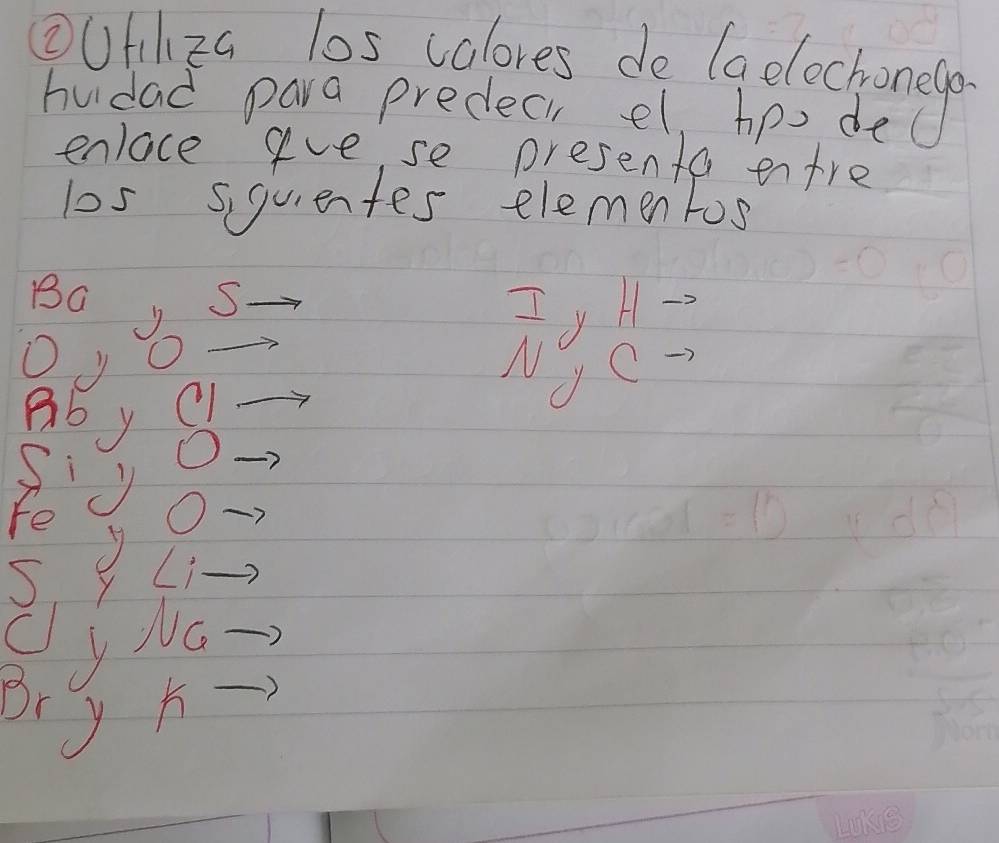 ② Utiliza los valores de la electronega-
tividad para predecir el tipo de
enlace que se presenta entre
los siguientes elementos
Ba y S →
O y O →
Rb y Cl →
Si y O →
Fe y O →
S y Li →
Cl y Na →
Br y K →
I y H →
N y C →
LUKIS